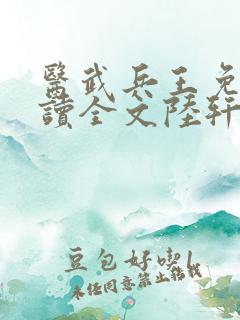 醫武兵王免
讀全文陸軒
豆包好吃
未经同意禁止转载